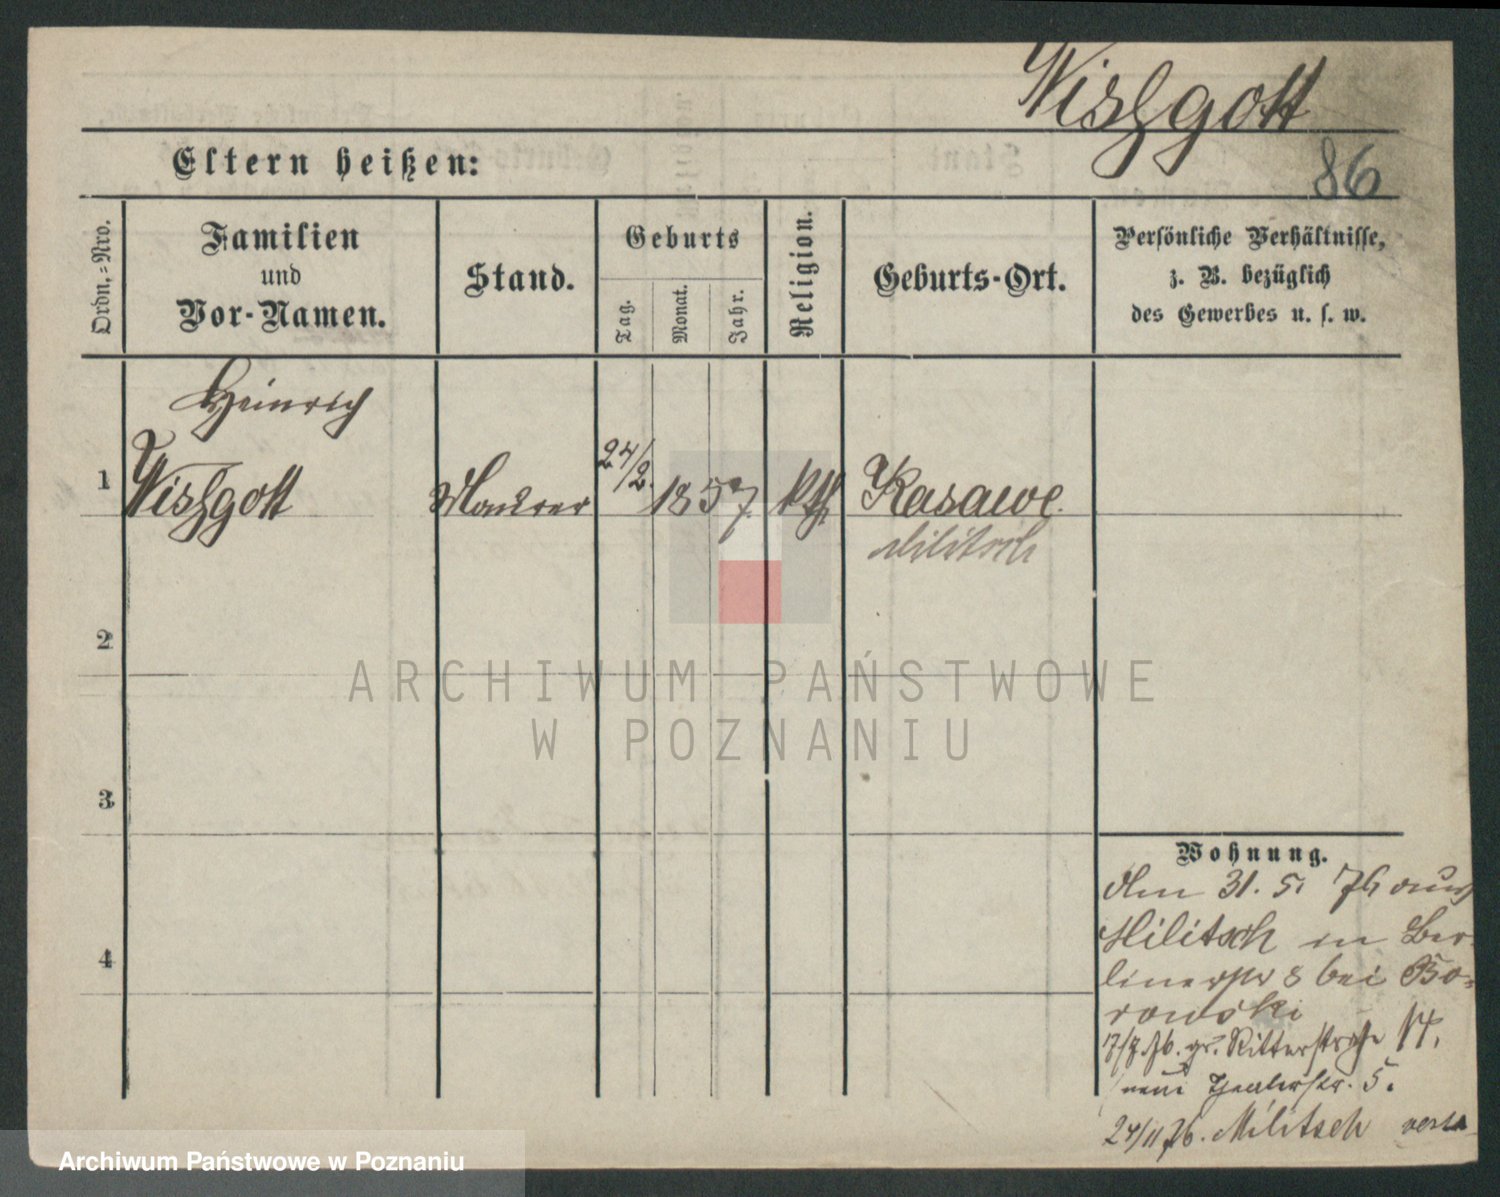 Wiszgott
86
Eltern heißen:
Ordn.-Nro.
Familien
und
Vor-Namen.
Stand.
Geburts
Tag.
Monat.
Jahr.
Religion.
Geburts-Ort.
Persönliche Verhältnisse,
z. B. bezüglich
des Gewerbes u. s. w.
Heinrich
1 Wiszgott Maurer 24/2. 1857 kth Kasawe.
Militsch
2
3
4
Wohnung.
Den 31. 5. 76 aus
Militsch in Ber-
linerstr 8 bei Bo-
rowski
7/8.76. gr. Ritterstraße 14,
neue Theaterstr. 5.
24/11 76. Militsch
ARCHIWUM PAŃSTWOWE
W POZNANIU
Archiwum Państwowe w Poznaniu